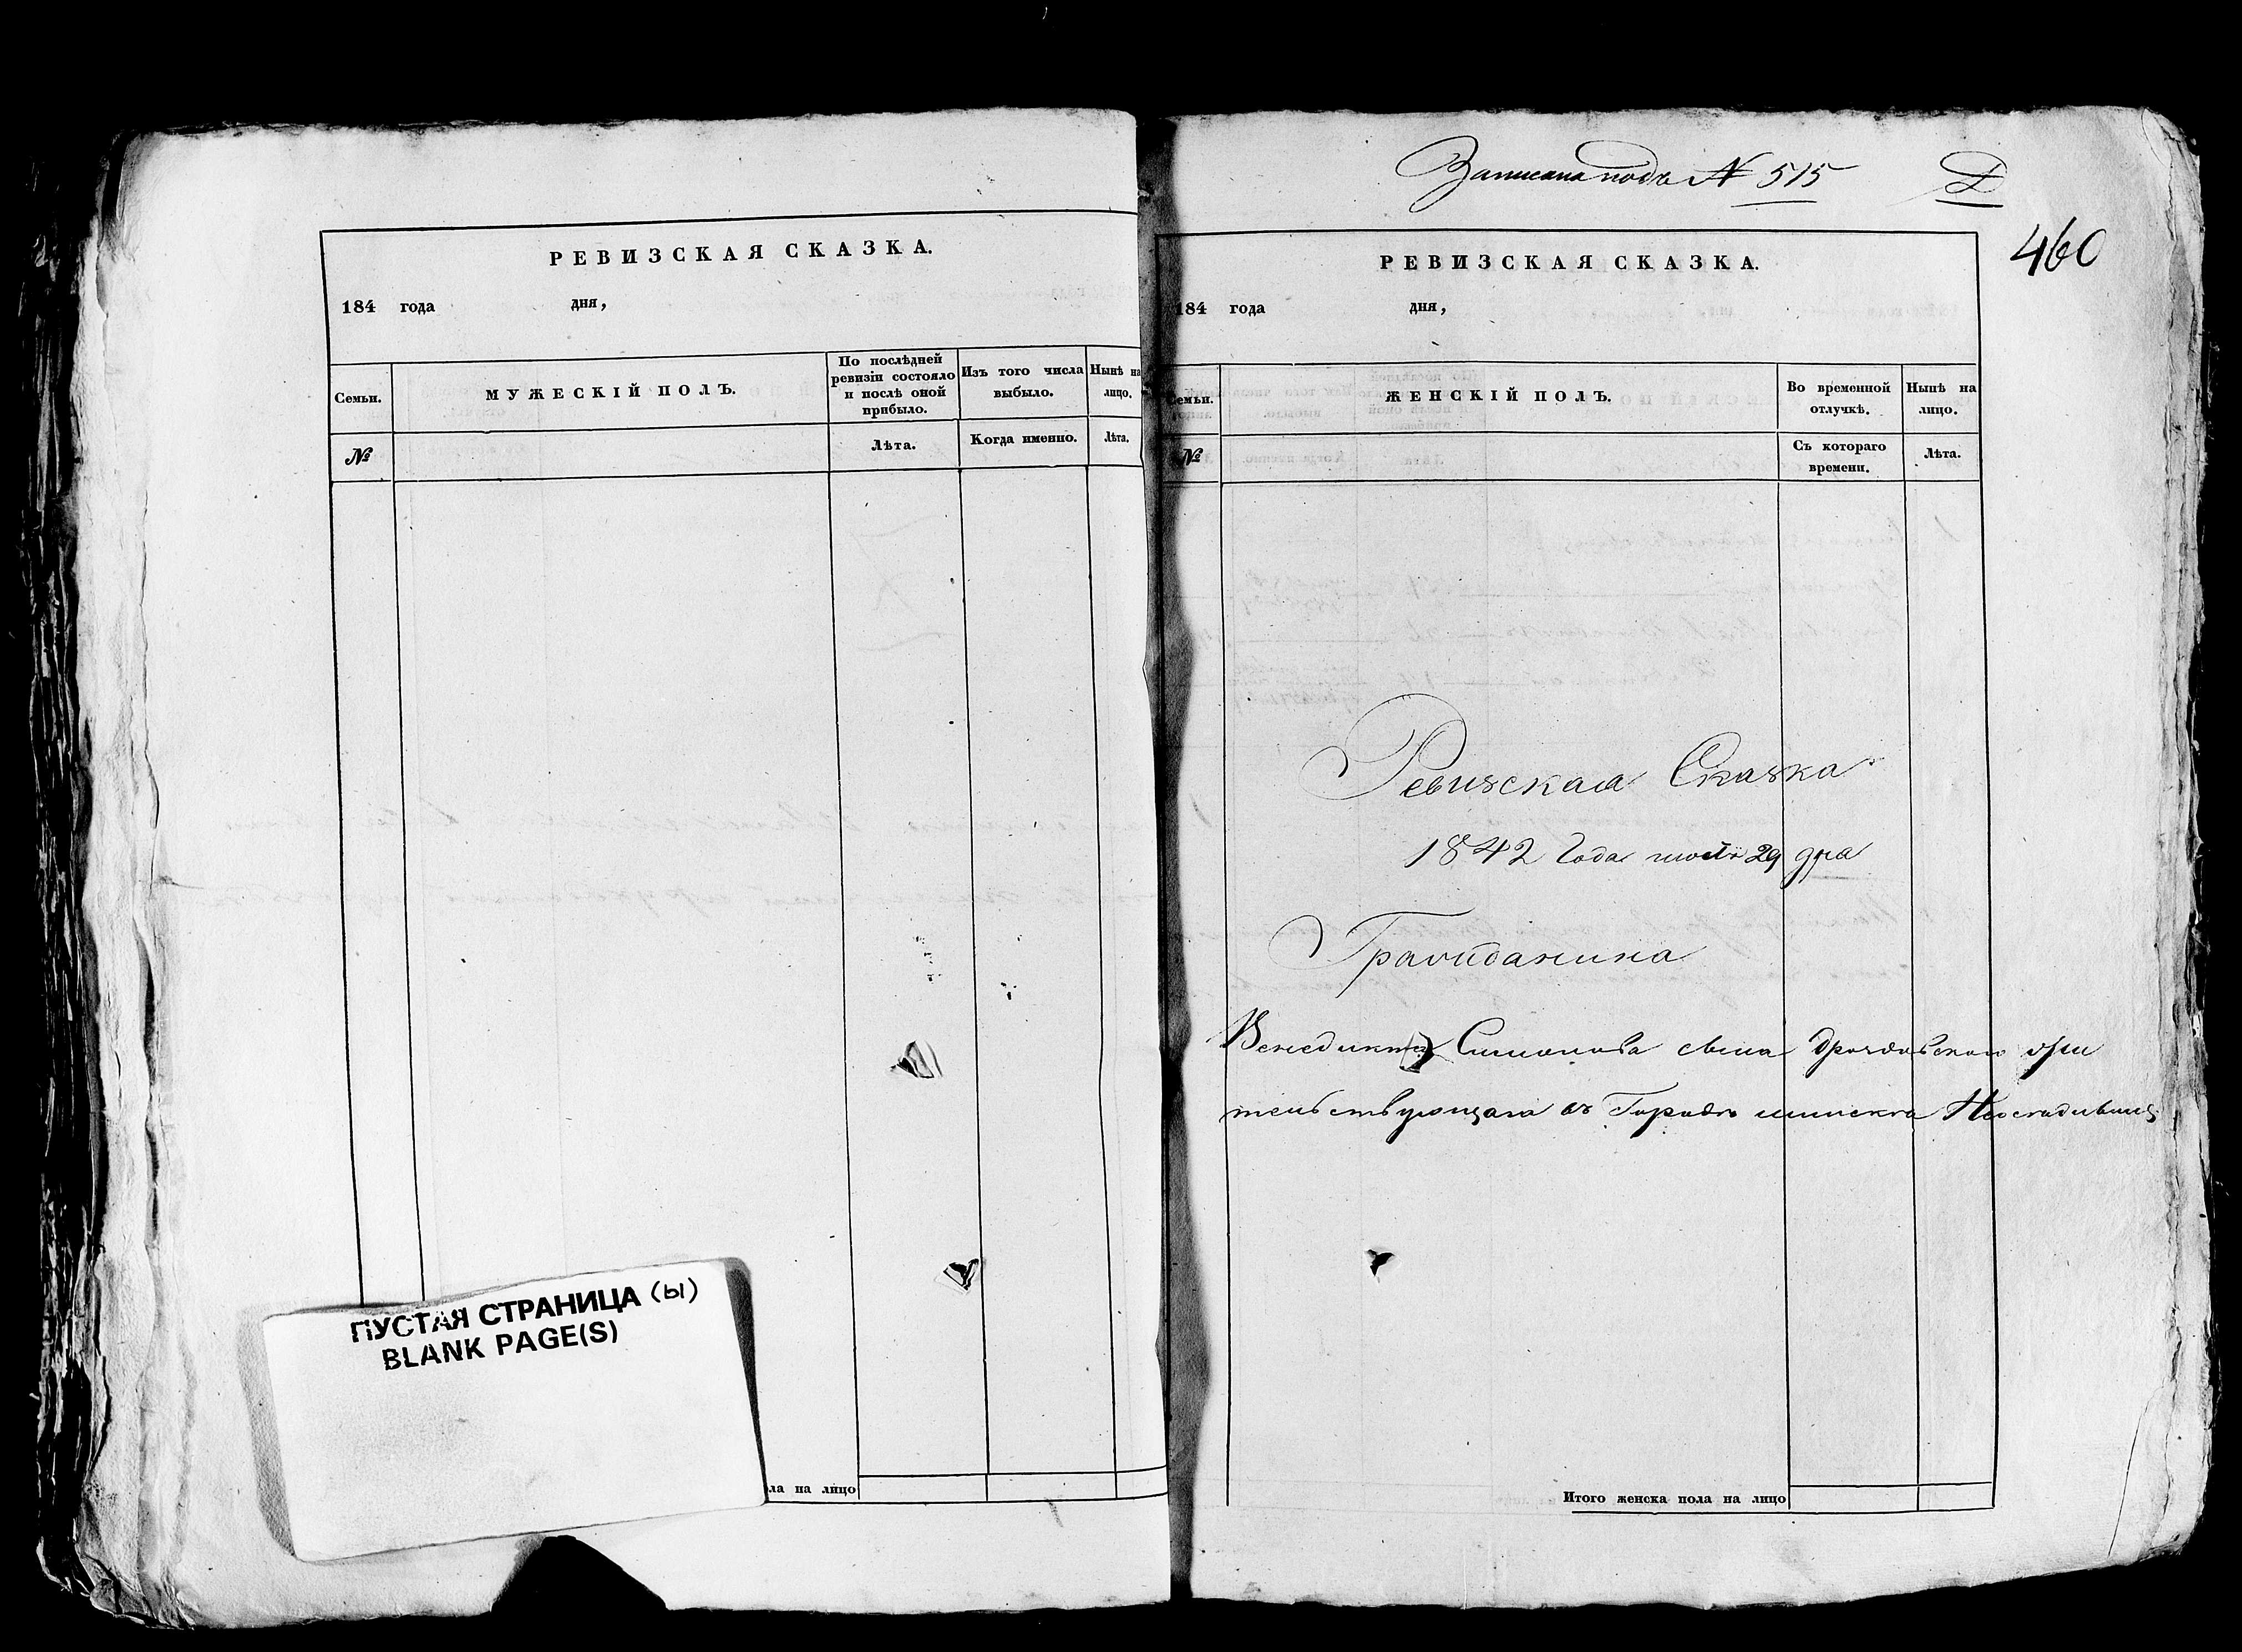 РЕВИЗСКАЯ СКАЗКА.
184 года дня,
Семьи.
МУЖЕСКІЙ ПОЛЪ.
По послѣдней
ревизіи состояло
и послѣ оной
прибыло.
Изъ того числа
выбыло.
Нынѣ на
лицо.
№
Лѣта.
Когда именно.
Лѣта.
ПУСТАЯ СТРАНИЦА (Ы)
BLANK PAGE(S)
ла на лицо
Записана подъ № 515
460
РЕВИЗСКАЯ СКАЗКА.
184 года дня,
Семьи.
ЖЕНСКІЙ ПОЛЪ.
Во временной
отлучкѣ.
Нынѣ на
лицо.
№
Съ котораго
времени.
Лѣта.
Ревизская Сказка
1842 Года 29 дня
Гражданина
Венедикта Симонова сына жи
тельствующаго въ Городѣ минска
Итого женска пола на лицо